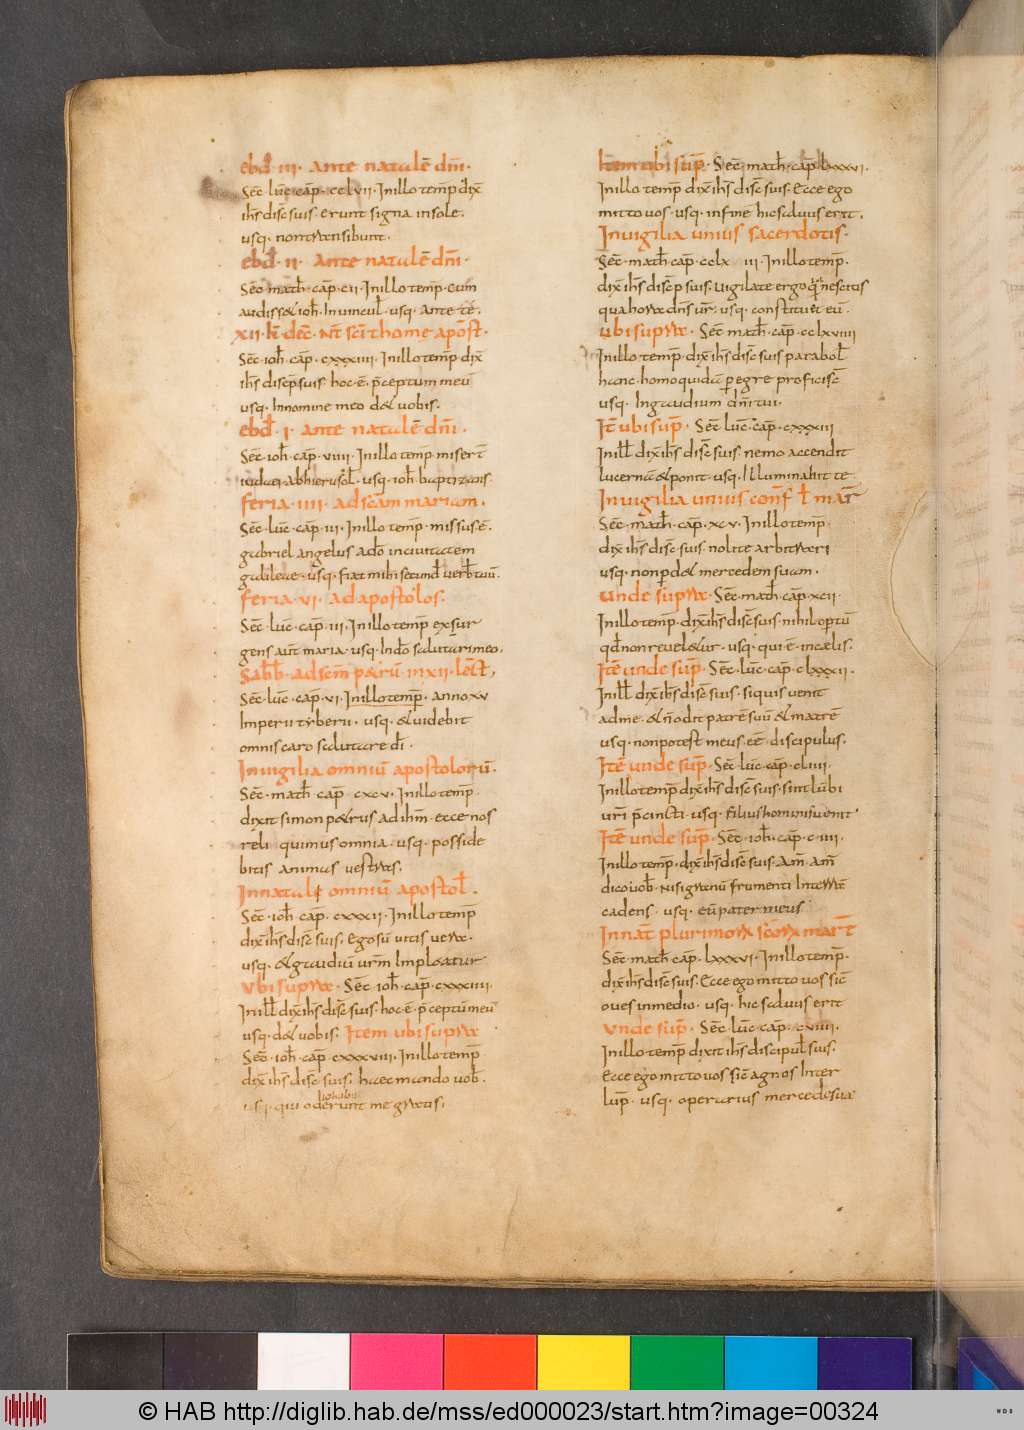 ebd̄ · iii · ante natalē dn̄i ·
Sec̄ · luc̄ · cap̄ · cclvii · In illo temp̄ dix̄
ih̄s disc̄ suis · erunt signa in sole ·
usq · non transibunt ·
ebd̄ · ii · ante natalē dn̄i ·
Sec̄ · math̄ · cap̄ · cii · In illo temp̄ · cum
audisset ioh̄ · In vincul̄ · usq · ante te ·
xii · kl̄ · dec̄ · nt̄ sc̄i thome apost̄ ·
Sec̄ · ioh̄ · cap̄ · cxxxiiii · In illo temp̄ · dix̄
ih̄s discp̄ suis · hoc · ē · p̄ceptum meū
usq · In nomine meo det vobis ·
ebd̄ · i · ante natalē dn̄i ·
Sec̄ · ioh̄ · cap̄ · viiii · In illo temp̄ misert̄
iudaei · ab hierusol̄ · usq · ioh̄ baptizans ·
feria · iiii · ad scam mariam ·
Sec̄ · luc̄ · cap̄ · iii · In illo temp̄ · missus ē ·
gabriel angelus a dō in civitatem
galileae · usq · fiat mihi secund̄ verb̄ tuū ·
feria · vi · ad apostolos ·
Sec̄ · luc̄ · cap̄ · iii · In illo temp̄ exsur
gens aut̄ maria · usq · In dō salutari meo ·
Sabb̄ · ad scm̄ petrū in xii · lect̄ ,
Sec̄ · luc̄ · cap̄ · vi · In illo temp̄ · anno xv
Imperii tyberii · usq · et videbit
omnis caro salutare dī ·
In vigilia omniū apostolorū ·
Sec̄ · math̄ · cap̄ · cxcv · In illo temp̄
dixit simon petrus ad ihm̄ · ecce nos
reli quimus omnia · usq · posside
bitis animas vestras ·
In natale omniū apostol̄ ·
Sec̄ · ioh̄ · cap̄ · cxxxii · In illo temp̄
dix̄ ih̄s disc̄ suis · ego sū vitis vera ·
usq · et gaudiū vrm̄ Impleatur
ubi supra · Sec̄ · ioh̄ · cap̄ cxxxiiii ·
In ill̄ dix̄ ih̄s disc̄ suis · hoc · ē · p̄ceptū meū
usq · det vobis · Item ubi supra
Sec̄ · ioh̄ · cap̄ · cxxxviii · In illo temp̄
dix̄ ih̄s disc̄ suis · haec mando vob̄ ·
usq · qui oderunt me gratis ·
Item ubi sup̄ · Sec̄ · math̄ · cap̄ lxxxvi ·
In illo temp̄ dix̄ ih̄s disc̄ suis · Ecce ego
mitto vos · usq · in finē hic salvus erit ·
In vigilia unius sacerdotis ·
Sec̄ · math̄ · cap̄ · cclx iii · In illo temp̄ ·
dix̄ ih̄s discp̄ suis · vigilate ergo q̄ nescitis
qua hora dn̄s ur̄ · usq · constituet eū ·
ubi supra · Sec̄ math̄ · cap̄ · cclxviiii
In illo temp̄ · dix̄ ih̄s disc̄ suis parabol̄
hanc · homo quidā peregre proficisc̄
usq · In gaudium dn̄i tui ·
It̄ ubi sup̄ · Sec̄ · luc̄ · cap̄ · cxxxiii
In ill̄ dix̄ ih̄s disc̄ suis · nemo accendit
lucernā et ponit · usq · Illuminabit te
In vigilia unius conf̄ ł mar̄
Sec̄ · math̄ · cap̄ · xcv · In illo temp̄ ·
dix̄ ih̄s disc̄ suis · nolite arbitrari
usq · non p̄det mercedem suam ·
unde supra · Sec̄ · math̄ · cap̄ · xcii ·
In illo temp̄ · dix̄ ih̄s disc̄ suis · nihil optū
qd̄ non reveletur · usq · qui · ē · in caelis ·
Itē unde sup̄ · Sec̄ · luc̄ · cap̄ · clxxxii ·
In ill̄ dix̄ ih̄s disc̄ suis · siquis venit
ad me · et n̄ odit patrē suū et matrē
usq · non potest meus · eē · discipulus ·
Itē unde sup̄ · Sec̄ · luc̄ · cap̄ · cliiii ·
In illo temp̄ dix̄ ih̄s disc̄ suis · sint lūbi
vrī p̄cincti · usq · filius hominis venit
Itē unde sup̄ · Sec̄ · ioh̄ · cap̄ · ciiii ·
In illo temp̄ · dix̄ ih̄s disc̄ suis · am̄ · am̄
dico vob̄ · nisi granū frumenti In terrā
cadens · usq · eū pater meus ·
In nat̄ plurimoꝝ scōꝝ mart̄
Sec̄ · math̄ · cap̄ · lxxxvi · In illo temp̄ ·
dix̄ ih̄s disc̄ suis · Ecce ego mitto vos sic̄
oves in medio · usq · hic salvus erit
unde sup̄ · Sec̄ · luc̄ · cap̄ · cviiii ·
In illo temp̄ dixit ih̄s discipul̄ suis ·
Ecce ego mitto vos sic̄ agnos Inter
lup̄ · usq · operarius mercede sua
© HAB http://diglib.hab.de/mss/ed000023/start.htm?image=00324